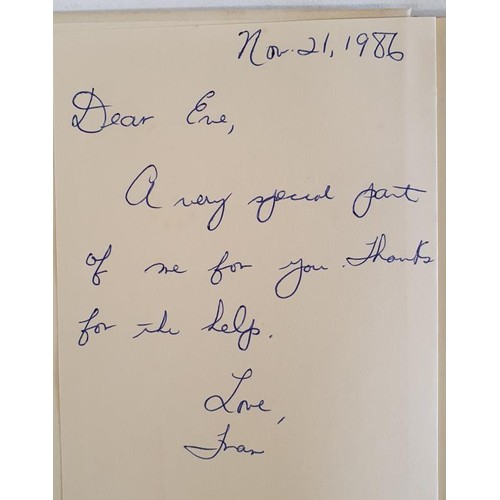 Nov. 21, 1986
Dear Eve,
A very special part
of me for you. Thanks
for the help.
Love,
Fran